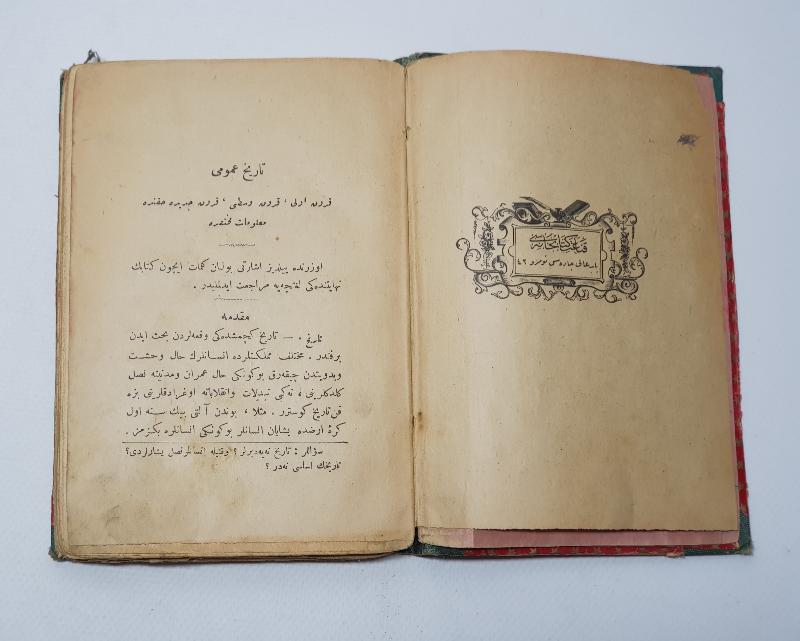 تاریخ عمومی
قرون اولی ، قرون وسطی ، قرون جدیده حقنده
معلومات مختصره
اوزرنده ییلدیز اشارتی بولنان کلمات ایچون کتابك
نهایتنده‌کی لغتچه‌یه مراجعت ایدلملیدر .
مقدمه
تاریخ . — تاریخ کچمشده‌کی وقعه‌لردن بحث ایدن
برفندر . مختلف مملکتلرده انسانلرك حال وحشت
وبدویتدن چیقه‌رق بوکونکی حال عمران ومدنیته نصل
کلدکلرینی ، نه‌کبی تبدلات وانقلاباته اوغرادقلرینی بزه
فن تاریخ کوسترر . مثلا ، بوندن آلتی بیك سنه اول
کرهٔ ارضده یشایان انسانلر بوکونکی انسانلره بکزمز .
سؤاللر : تاریخ نه‌یه‌دیرلر ؟ وقتیله انسانلرنصل یشارلردی؟
تاریخك اساسی نه‌در ؟
قناعت کتابخانه‌سی
باب عالی جاده‌سی نومرو ٤٢